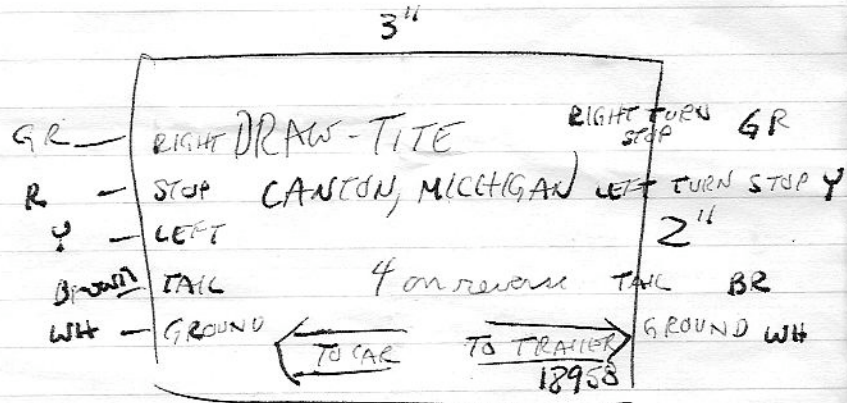 3"
GR — RIGHT DRAW-TITE RIGHT TURN STOP GR
R — STOP CANTON, MICHIGAN LEFT TURN STOP Y
Y — LEFT 2"
Brown TAIL 4 on reverse TAIL BR
WH — GROUND GROUND WH
TO CAR TO TRAILER
18958